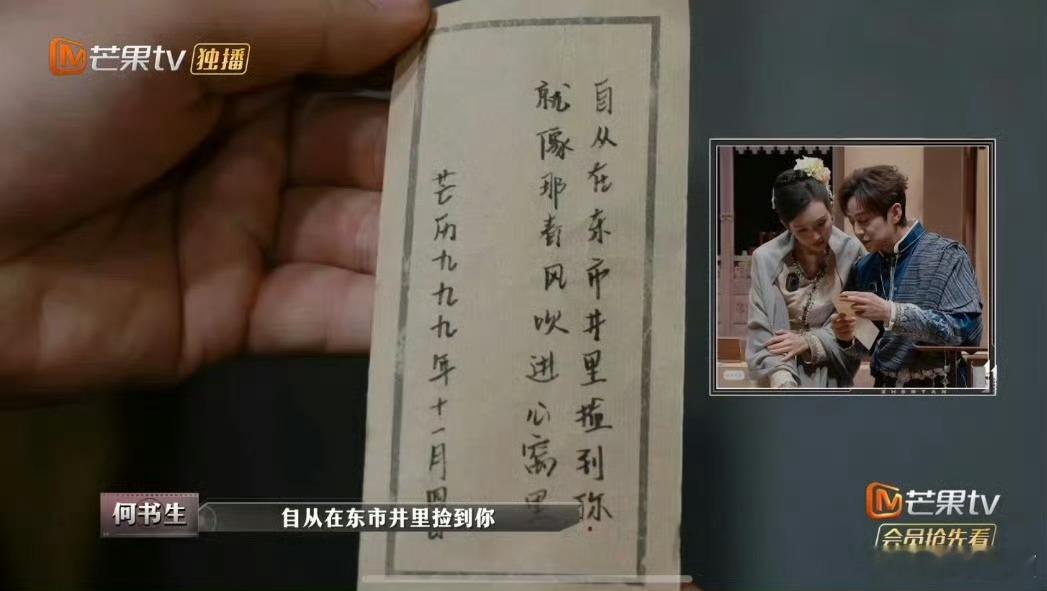 芒果tv 独播
自从在东市井里捡到你
就像那春风吹进心窝里
芒历九九九年十一月四日
何书生
自从在东市井里捡到你
ZHENTAN
芒果tv
会员抢先看